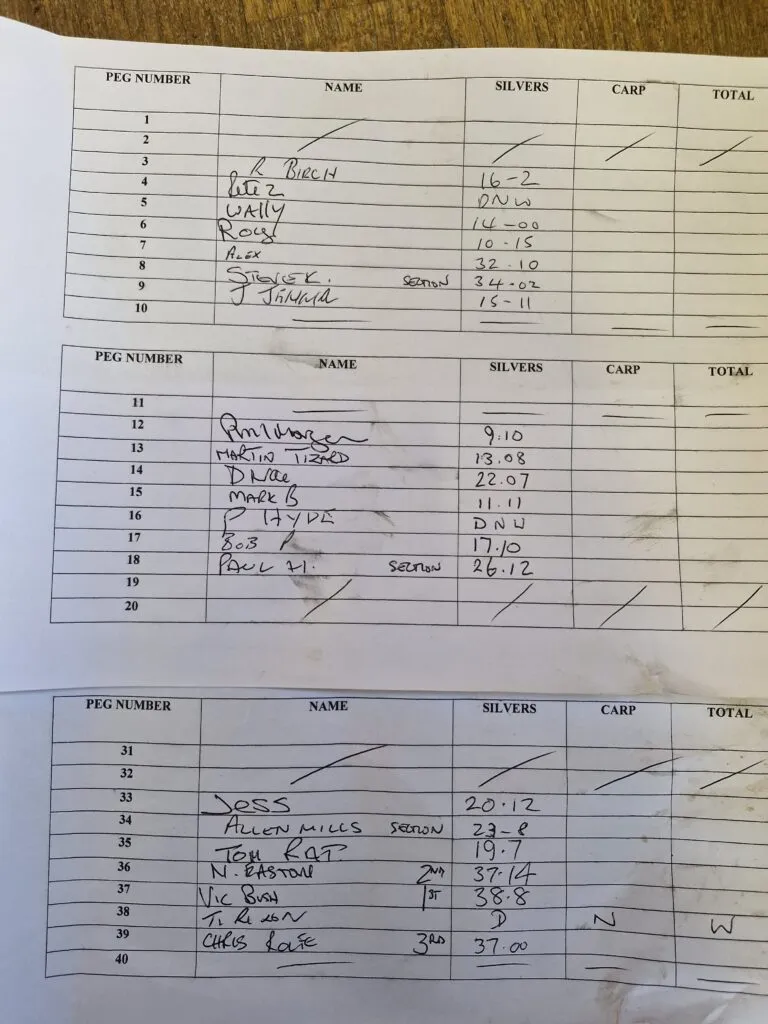 PEG NUMBER NAME SILVERS CARP TOTAL
1
2
3 R BIRCH 16-2
4 Pete Z DNW
5 WALLY 14-00
6 10.15
7 ALEX 32.10
8 STEVE K. SECTION 34.02
9 J 15-11
10
PEG NUMBER NAME SILVERS CARP TOTAL
11
12 9.10
13 MARTIN TIZARD 13.08
14 22.07
15 MARK B 11.11
16 P HYDE DNW
17 BOB P 17.10
18 PAUL H. SECTION 26.12
19
20
PEG NUMBER NAME SILVERS CARP TOTAL
31
32
33 JESS 20.12
34 ALLEN MILLS SECTION 23-8
35 TOM RAT. 19.7
36 N. EASTON 2ND 37.14
37 VIC BUSH 1ST 38.8
38 D N W
39 CHRIS 3RD 37.00
40